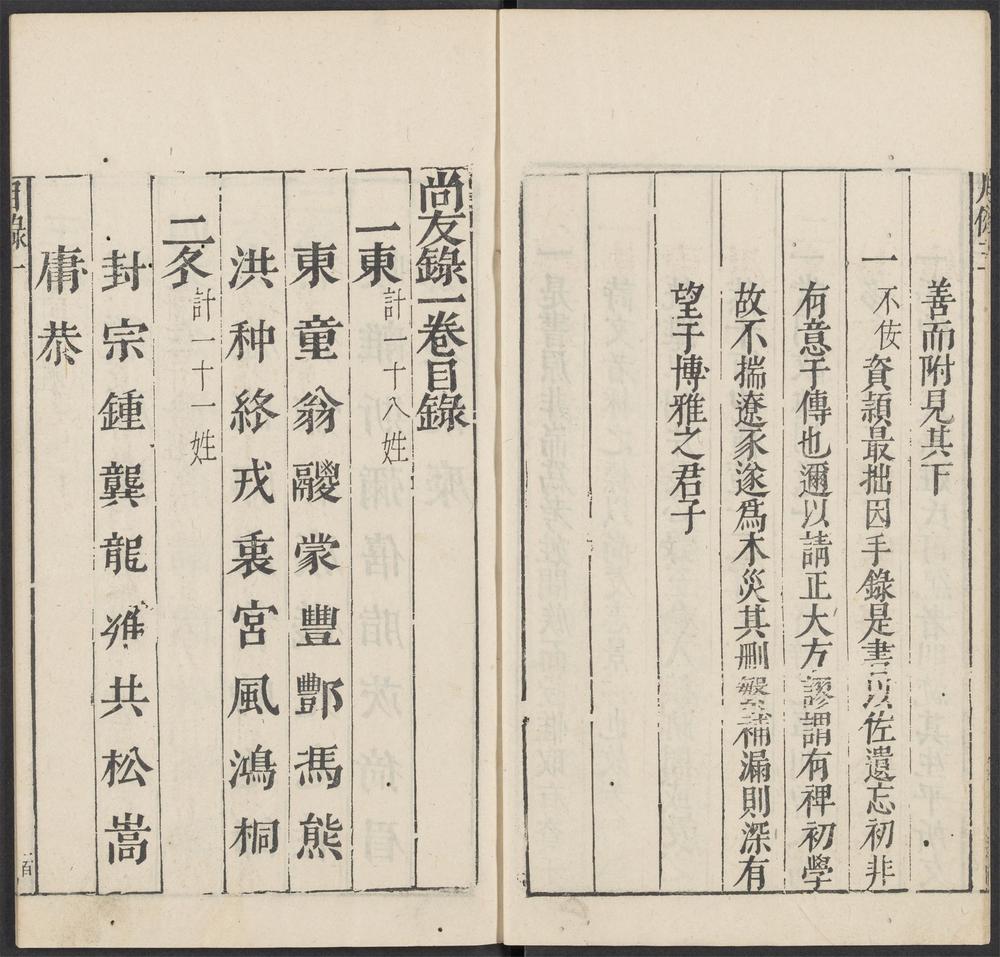 善而附見其下
一不佞資頴最拙因手錄是書以佐遺忘初非
有意于傳也邇以請正大方謬謂有裨初學
故不揣遼豕遂爲木災其刪繁補漏則深有
望于博雅之君子
尚友錄一卷目錄
一東計一十八姓
東童翁鬷蒙豐酆馮熊
洪种終戎衷宮風鴻桐
二冬計一十一姓
封宗鍾龔龍雍共松嵩
庸恭
目錄一